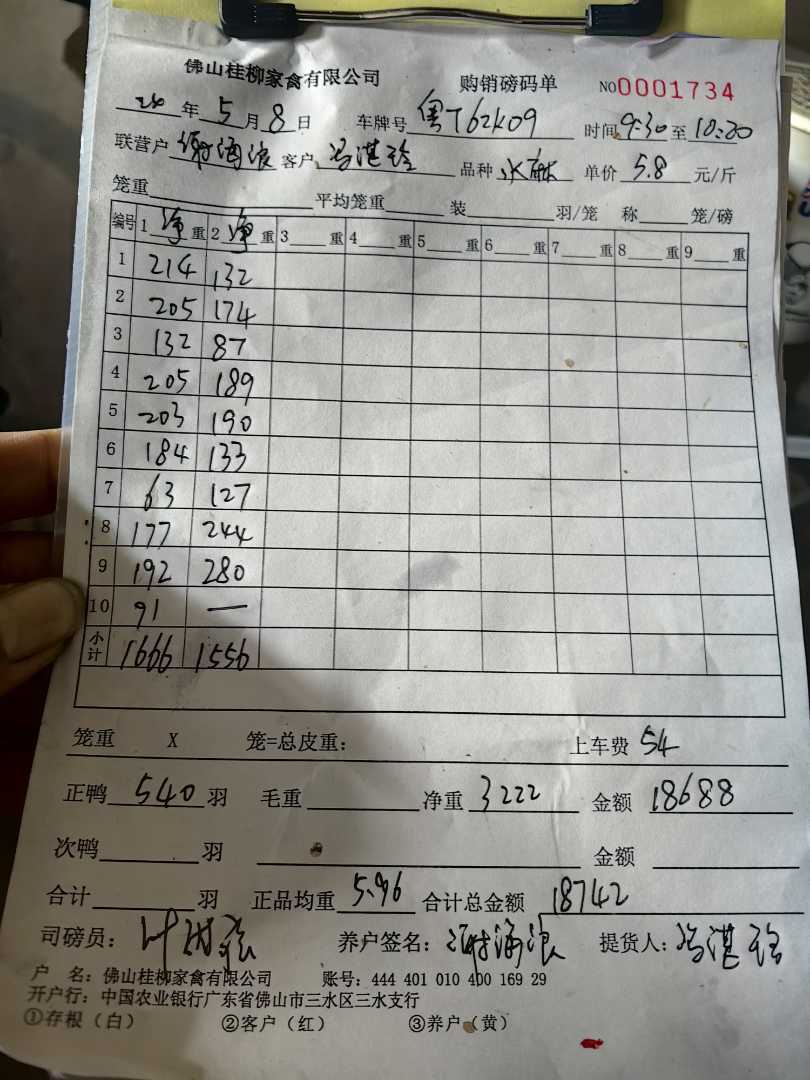 佛山桂柳家禽有限公司 购销磅码单 NO0001734
年 5 月 8 日 车牌号 粤T62K09 时间 9:30 至 10:20
联营户 谢海浪 客户 冯湛玲 品种 水鸭 单价 5.8 元/斤
笼重 平均笼重 装 羽/笼 称 笼/磅
编号 1 净 重 2 净 重 3 重 4 重 5 重 6 重 7 重 8 重 9 重
1 214 132
2 205 174
3 132 87
4 205 189
5 203 190
6 184 133
7 63 127
8 177 244
9 192 280
10 91 —
小计 1666 1556
笼重 X 笼=总皮重: 上车费 54
正鸭 540 羽 毛重 净重 3222 金额 18688
次鸭 羽 金额
合计 羽 正品均重 5.96 合计总金额 18742
司磅员: 叶 养户签名: 谢海浪 提货人: 冯湛玲
户 名: 佛山桂柳家禽有限公司 账号: 444 401 010 400 169 29
开户行: 中国农业银行广东省佛山市三水区三水支行
①存根（白） ②客户（红） ③养户（黄）